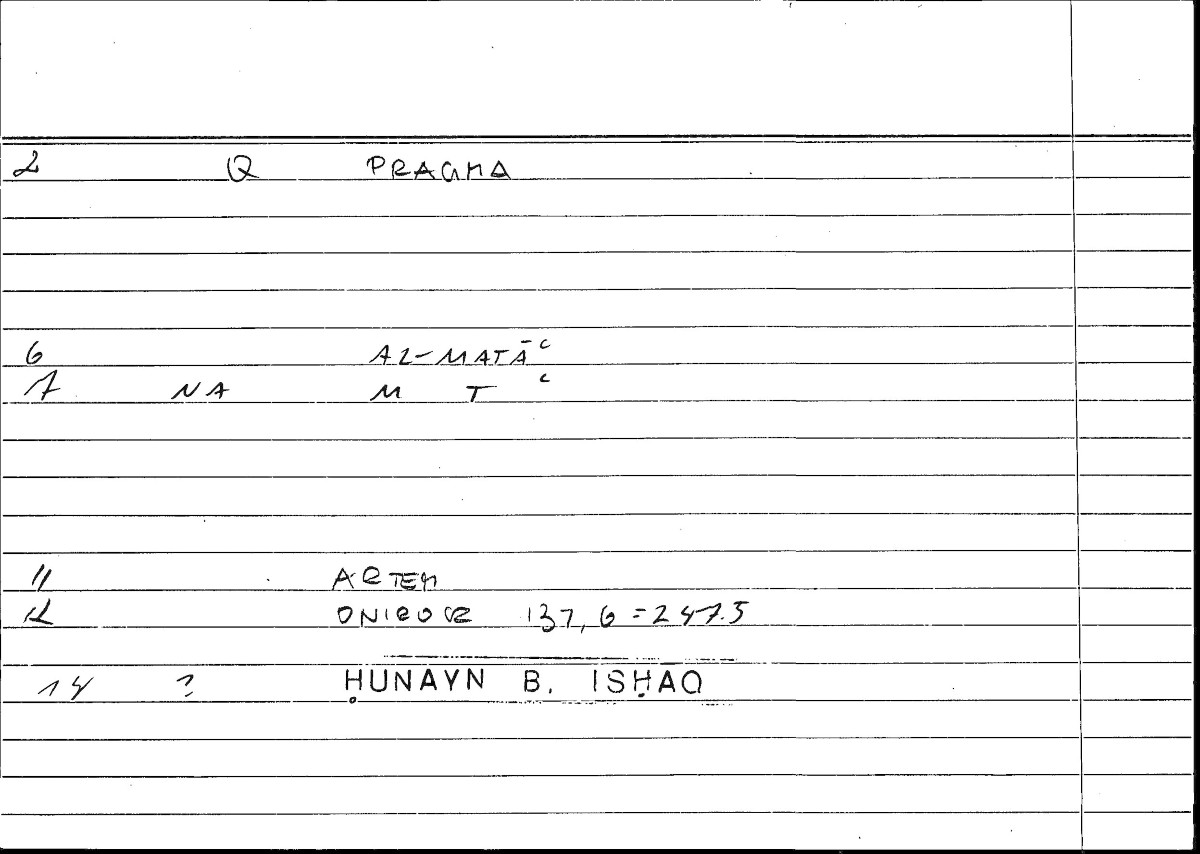 2 Q PRAGMA
6 AL-MATĀʿ
7 NA M T ʿ
11 ARTEM
12 ONIROCR 137,6=247.5
14 ? ḤUNAYN B. ISḤAQ